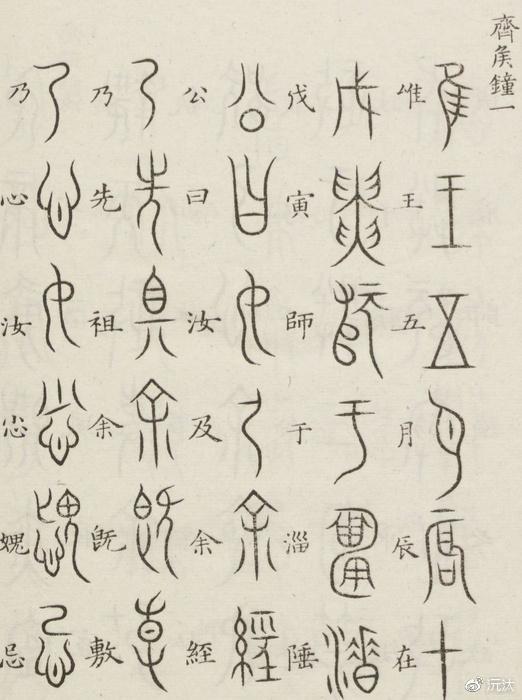 齊矦鐘一
唯王五月辰在
戊寅師于淄陲
公曰汝及余經
乃先祖余旣敷
乃心汝媿忌